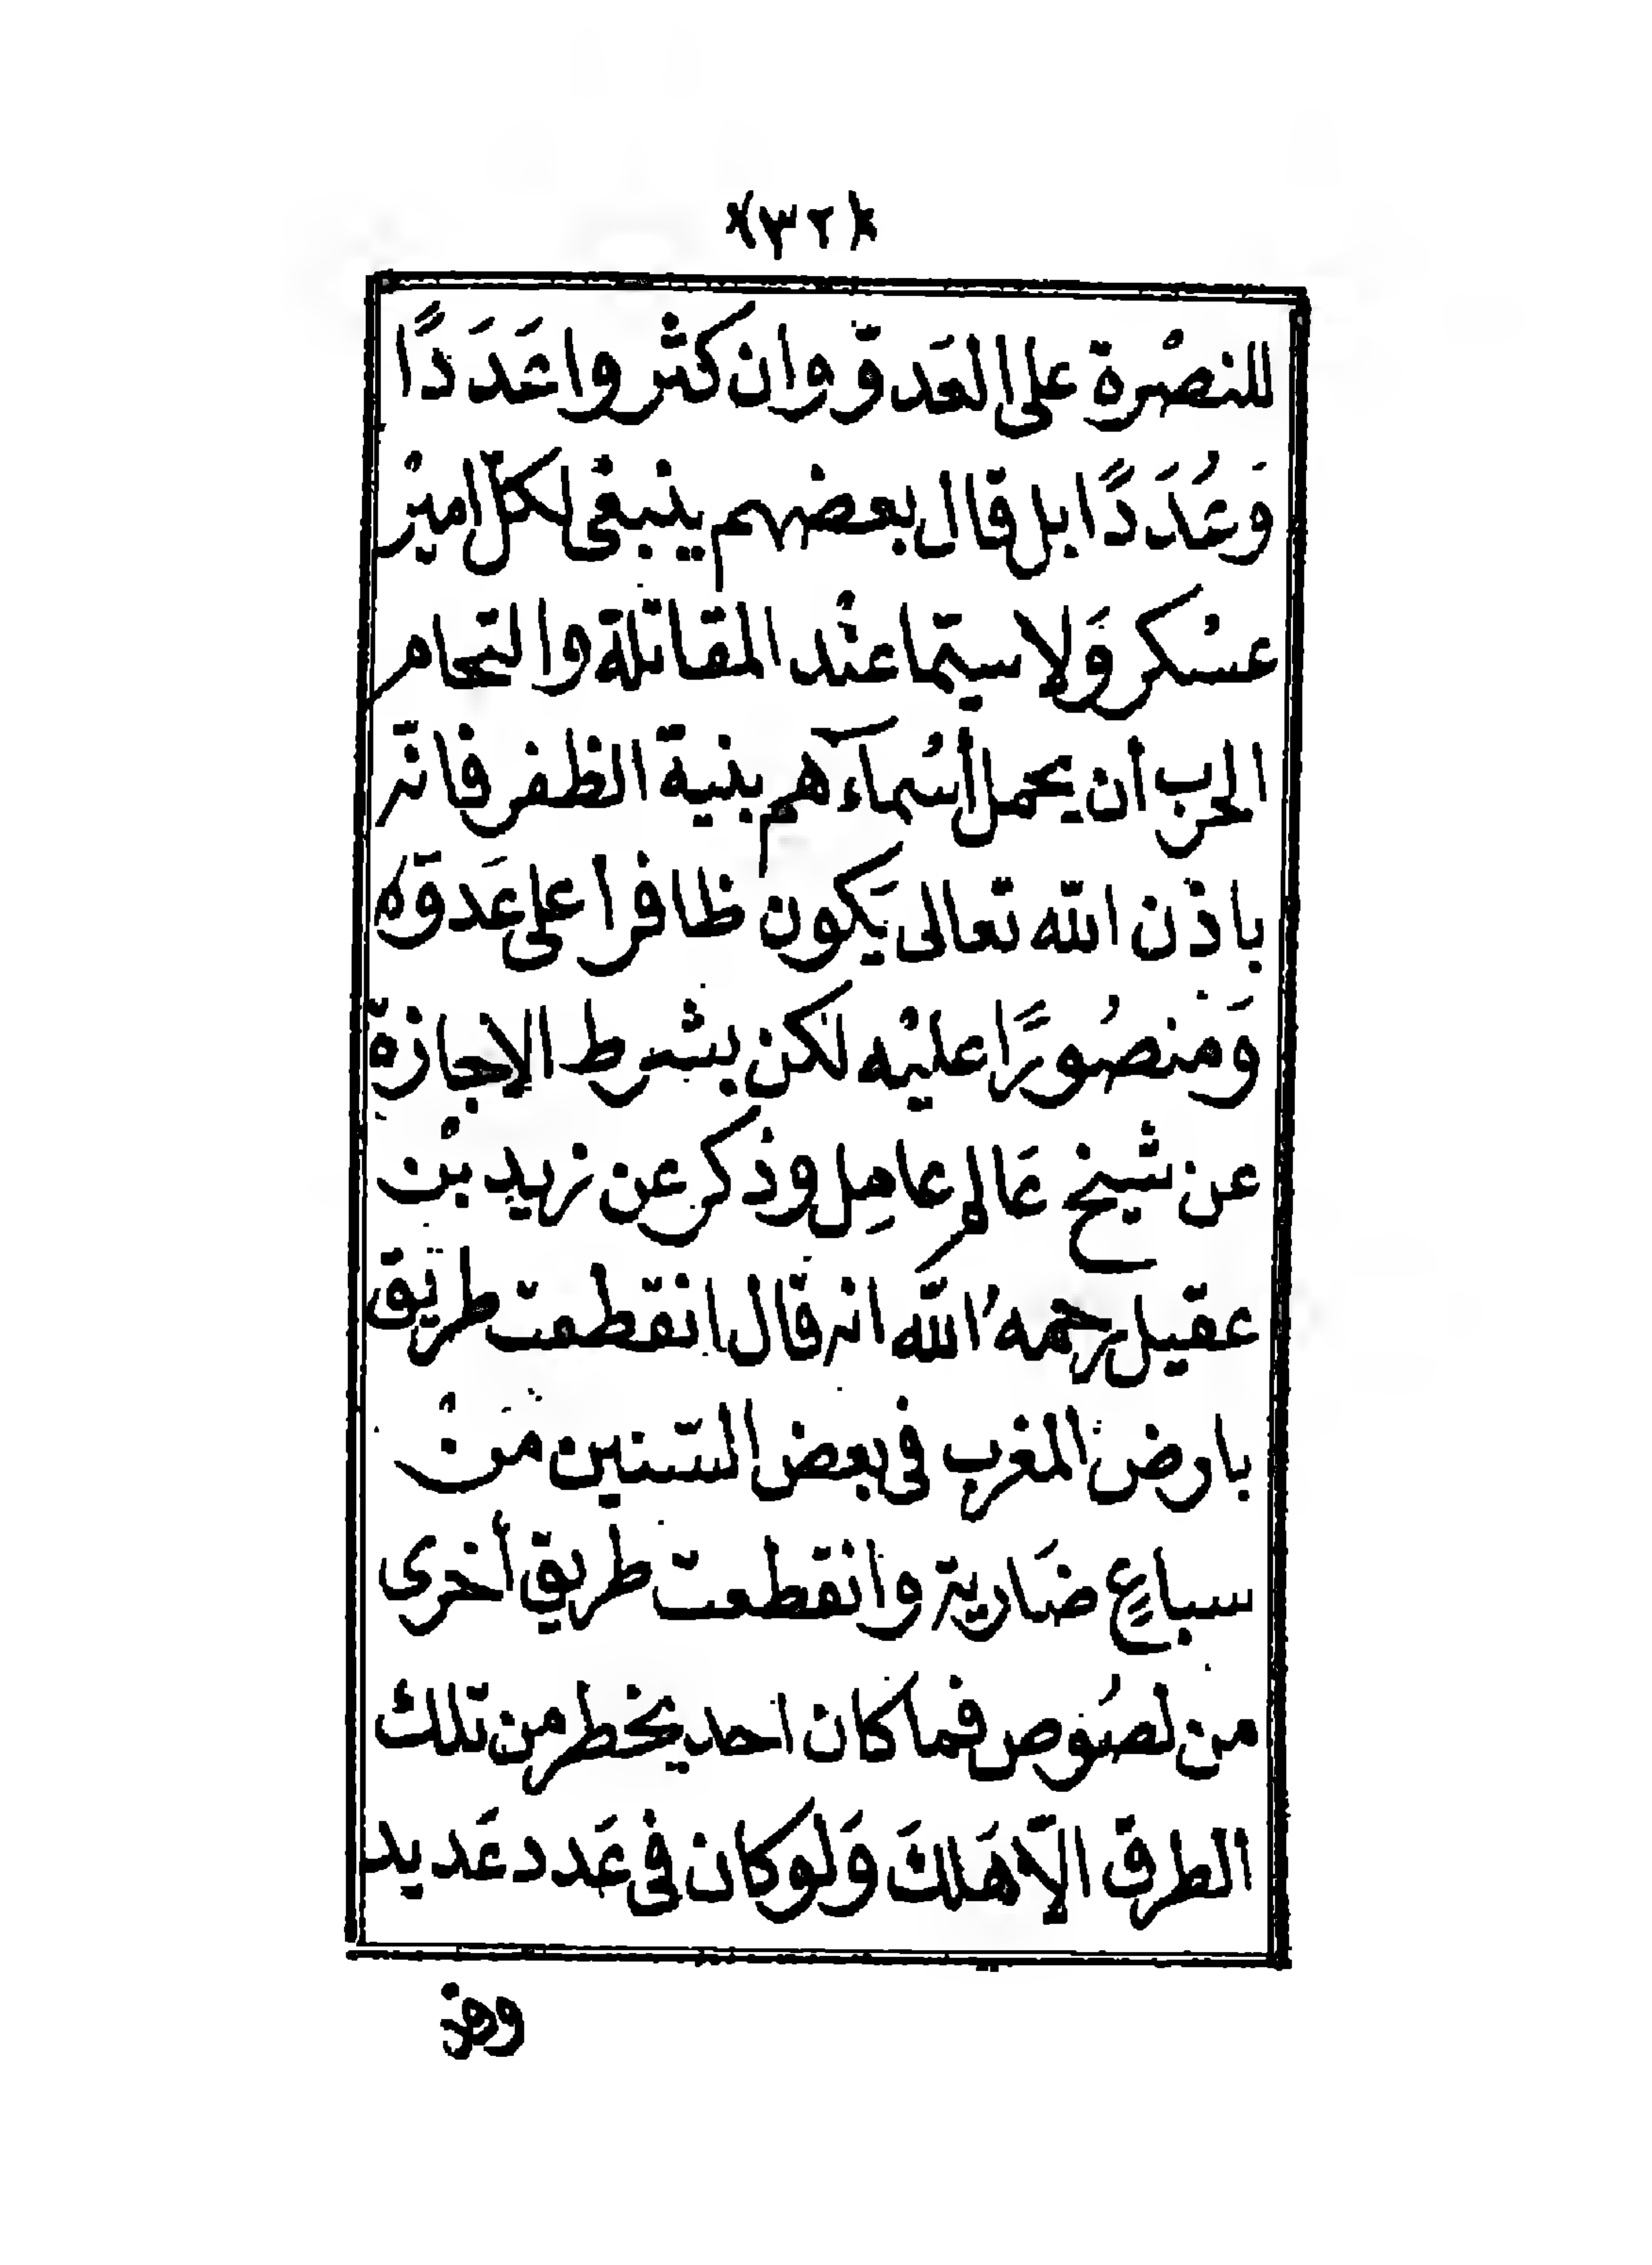 ﴿٢٣﴾
للنصْرة على العَدوّ وان كثروا عَدَدًا
وَعُدَدًا بل قال بعضهم ينبغى لكلّ اميرْ
عسْكر وَلا سيّما عنْد المقاتلة والتحام
الحرب أن يحمل أسْماءَهم بنية الظفر فانّه
باذن الله تعالى يَكون ظافرا على عَدوّه
وَمنصُورًا عليْه لكن بشرط الاجازة
عن شيخ عَالم عامِل وذكر عن زيد بْن
عقيل رحمهُ الله انه قال انقطعت طريق
بارض المغرب فى بعض السّنين منْ
سباعٍ ضَارية وانقطعت طريق أخرى
من لصُوص فما كان احد يخطر من تلك
الطرق الّا هَلكَ وَلو كان فى عَدد عَديد
وهذ